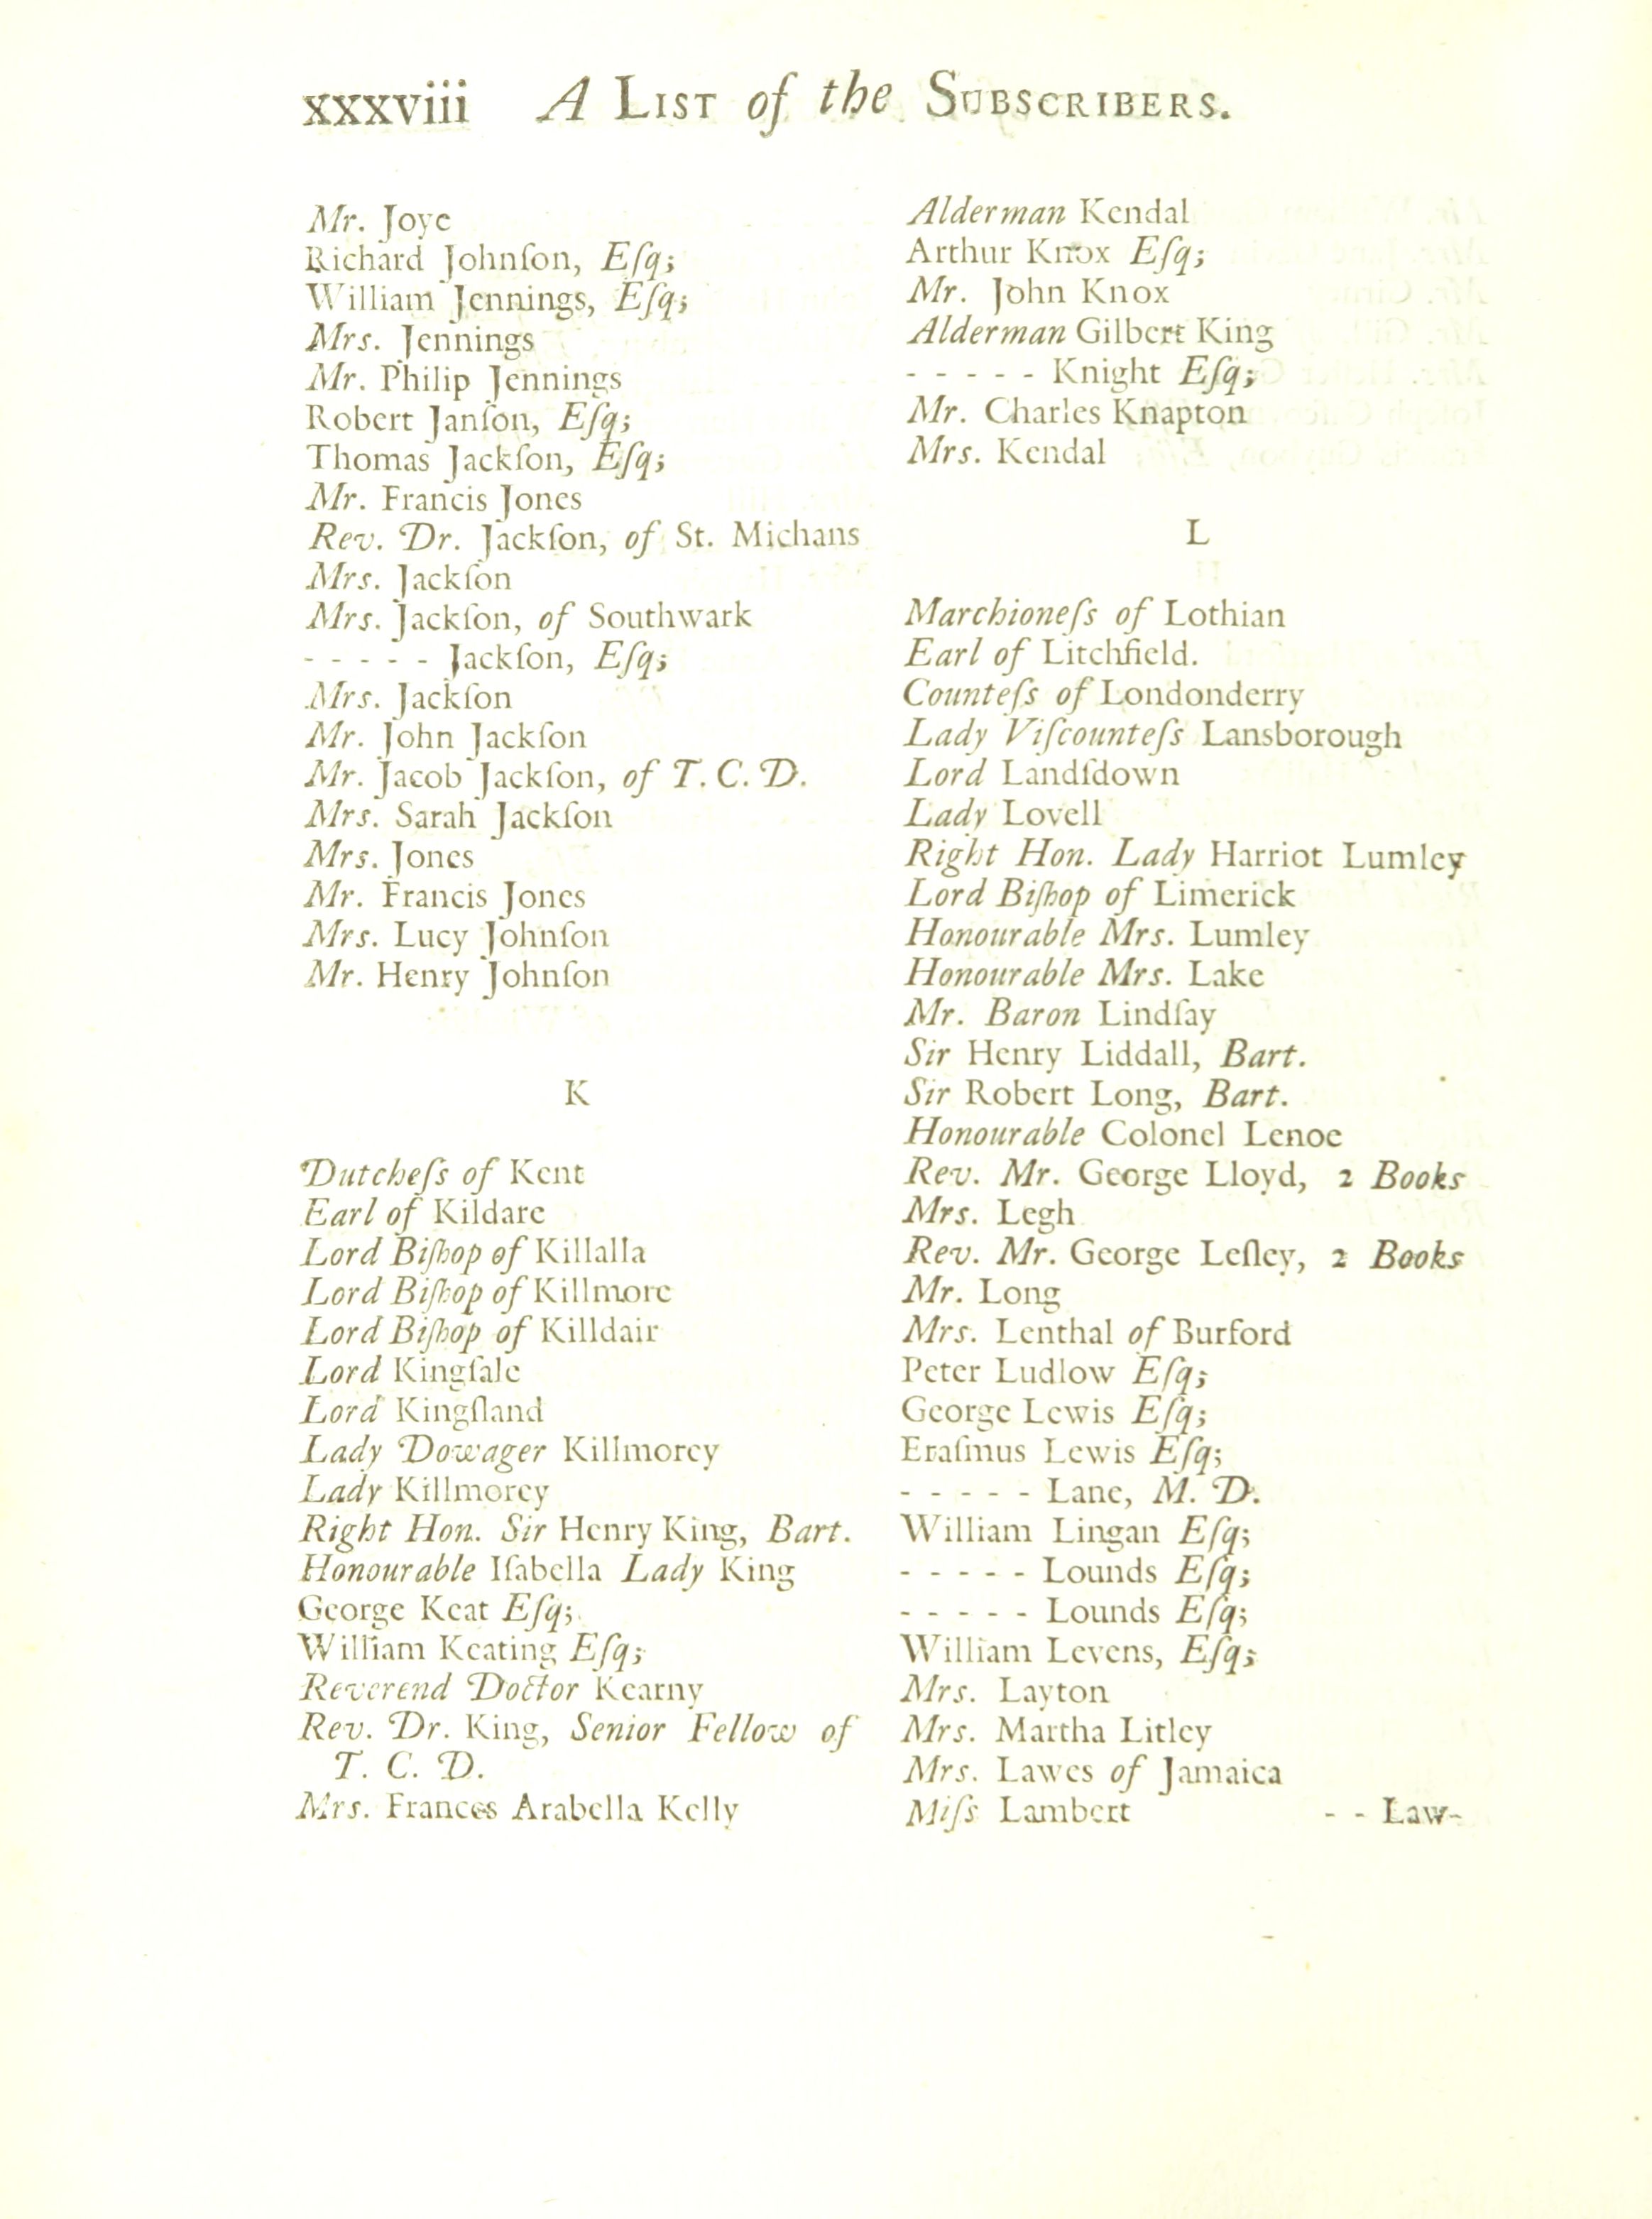 xxxviii A LIST of the SUBSCRIBERS.
Mr. Joye
Richard Johnſon, Eſq;
William Jennings, Eſq;
Mrs. Jennings
Mr. Philip Jennings
Robert Janſon, Eſq;
Thomas Jackſon, Eſq;
Mr. Francis Jones
Rev. Dr. Jackſon, of St. Michans
Mrs. Jackſon
Mrs. Jackſon, of Southwark
- - - - - Jackſon, Eſq;
Mrs. Jackſon
Mr. John Jackſon
Mr. Jacob Jackſon, of T. C. D.
Mrs. Sarah Jackſon
Mrs. Jones
Mr. Francis Jones
Mrs. Lucy Johnſon
Mr. Henry Johnſon
K
Dutcheſs of Kent
Earl of Kildare
Lord Biſhop of Killalla
Lord Biſhop of Killmore
Lord Biſhop of Killdair
Lord Kingſale
Lord Kingſland
Lady Dowager Killmorey
Lady Killmorey
Right Hon. Sir Henry King, Bart.
Honourable Iſabella Lady King
George Keat Eſq;
William Keating Eſq;
Reverend Doctor Kearny
Rev. Dr. King, Senior Fellow of
T. C. D.
Mrs. Frances Arabella Kelly
Alderman Kendal
Arthur Knox Eſq;
Mr. John Knox
Alderman Gilbert King
- - - - - Knight Eſq;
Mr. Charles Knapton
Mrs. Kendal
L
Marchioneſs of Lothian
Earl of Litchfield.
Counteſs of Londonderry
Lady Viſcounteſs Lansborough
Lord Landſdown
Lady Lovell
Right Hon. Lady Harriot Lumley
Lord Biſhop of Limerick
Honourable Mrs. Lumley
Honourable Mrs. Lake
Mr. Baron Lindſay
Sir Henry Liddall, Bart.
Sir Robert Long, Bart.
Honourable Colonel Lenoe
Rev. Mr. George Lloyd, 2 Books
Mrs. Legh
Rev. Mr. George Leſley, 2 Books
Mr. Long
Mrs. Lenthal of Burford
Peter Ludlow Eſq;
George Lewis Eſq;
Eraſmus Lewis Eſq;
- - - - - Lane, M. D.
William Lingan Eſq;
- - - - - Lounds Eſq;
- - - - - Lounds Eſq;
William Levens, Eſq;
Mrs. Layton
Mrs. Martha Litley
Mrs. Lawes of Jamaica
Miſs Lambert - - Law-